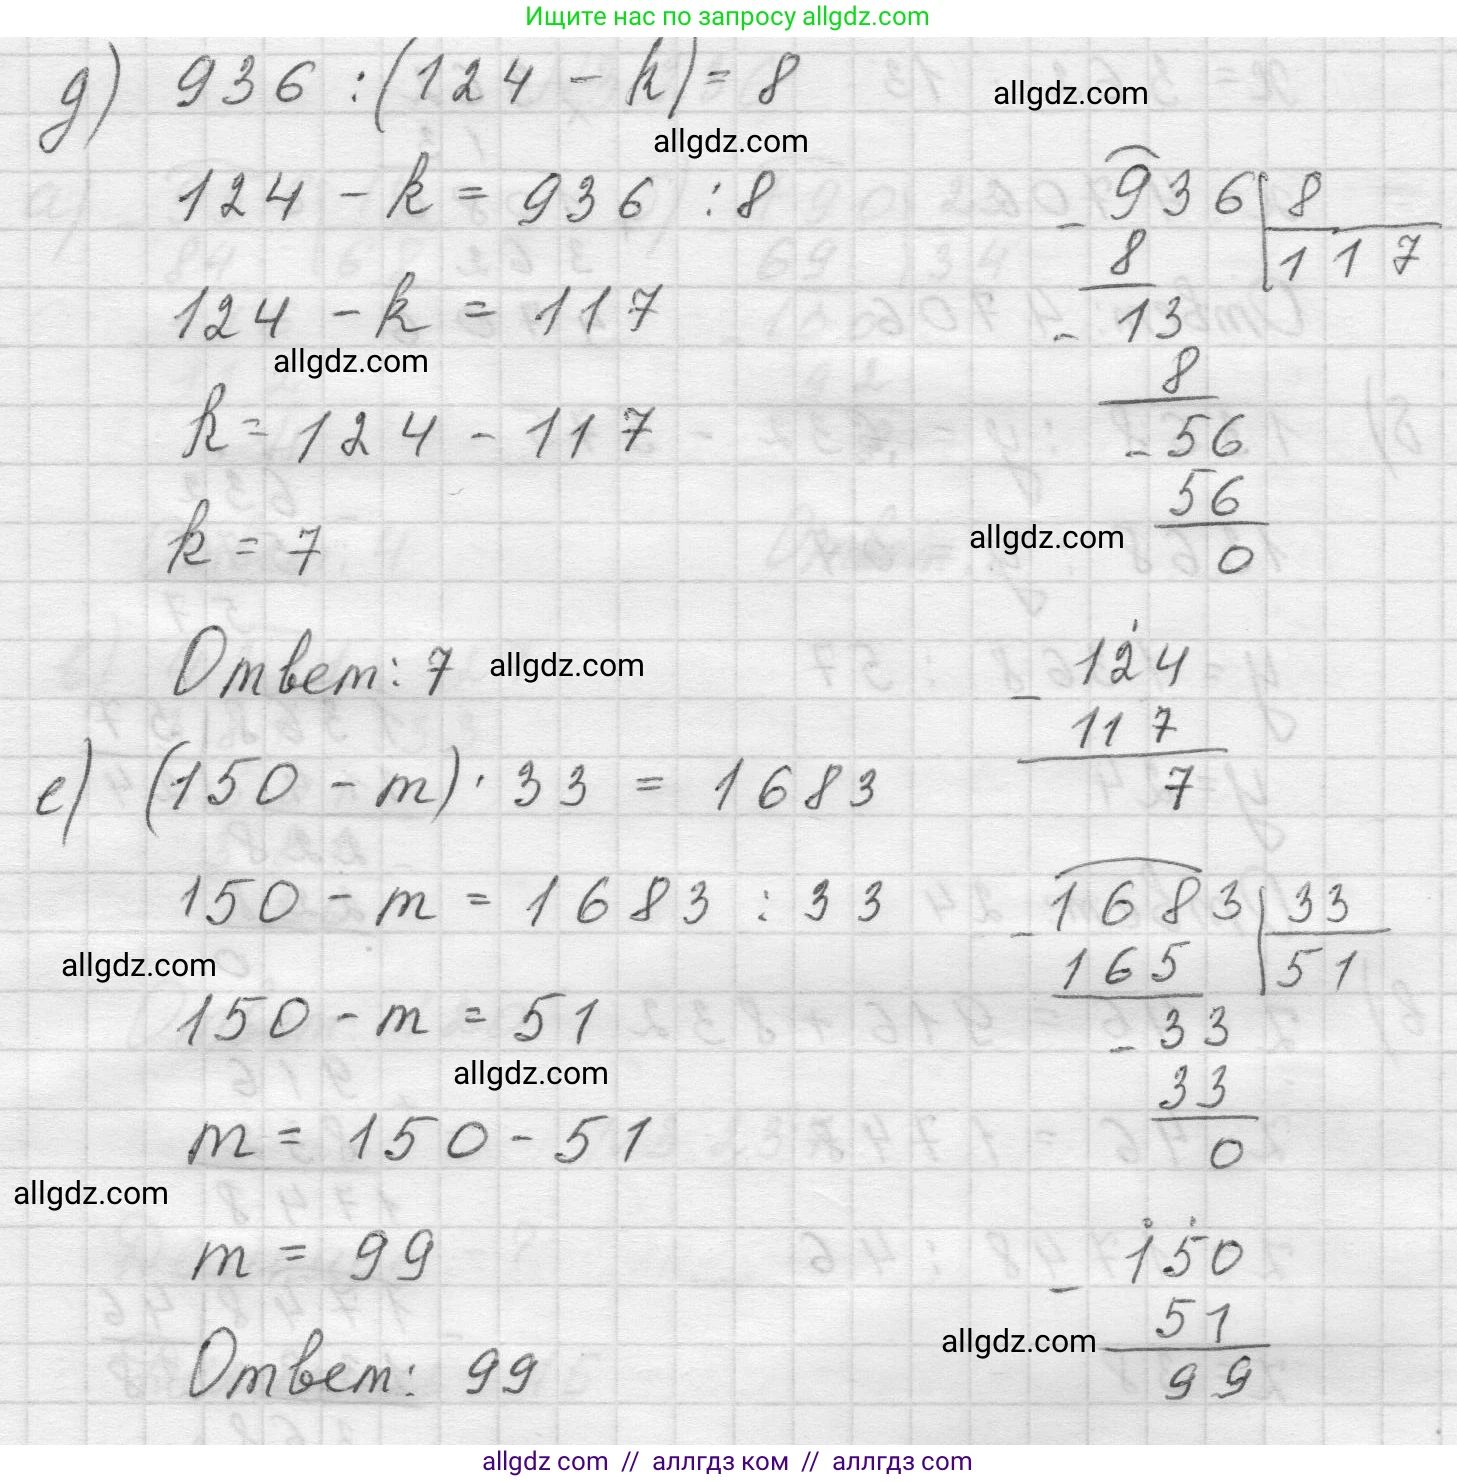 Ищите нас по запросу allgdz.com
д) 936 : (124 - k) = 8
allgdz.com
allgdz.com
124 - k = 936 : 8
124 - k = 117
allgdz.com
k = 124 - 117
k = 7
Ответ: 7
allgdz.com
936 | 8
- 8 | 117
- 13
8
- 56
56
0
allgdz.com
- 124
117
7
е) (150 - m) · 33 = 1683
150 - m = 1683 : 33
allgdz.com
150 - m = 51
allgdz.com
m = 150 - 51
allgdz.com
m = 99
Ответ: 99
- 1683 | 33
165 | 51
- 33
33
0
- 150
51
99
allgdz.com
allgdz.com // аллгдз ком // аллгдз.com